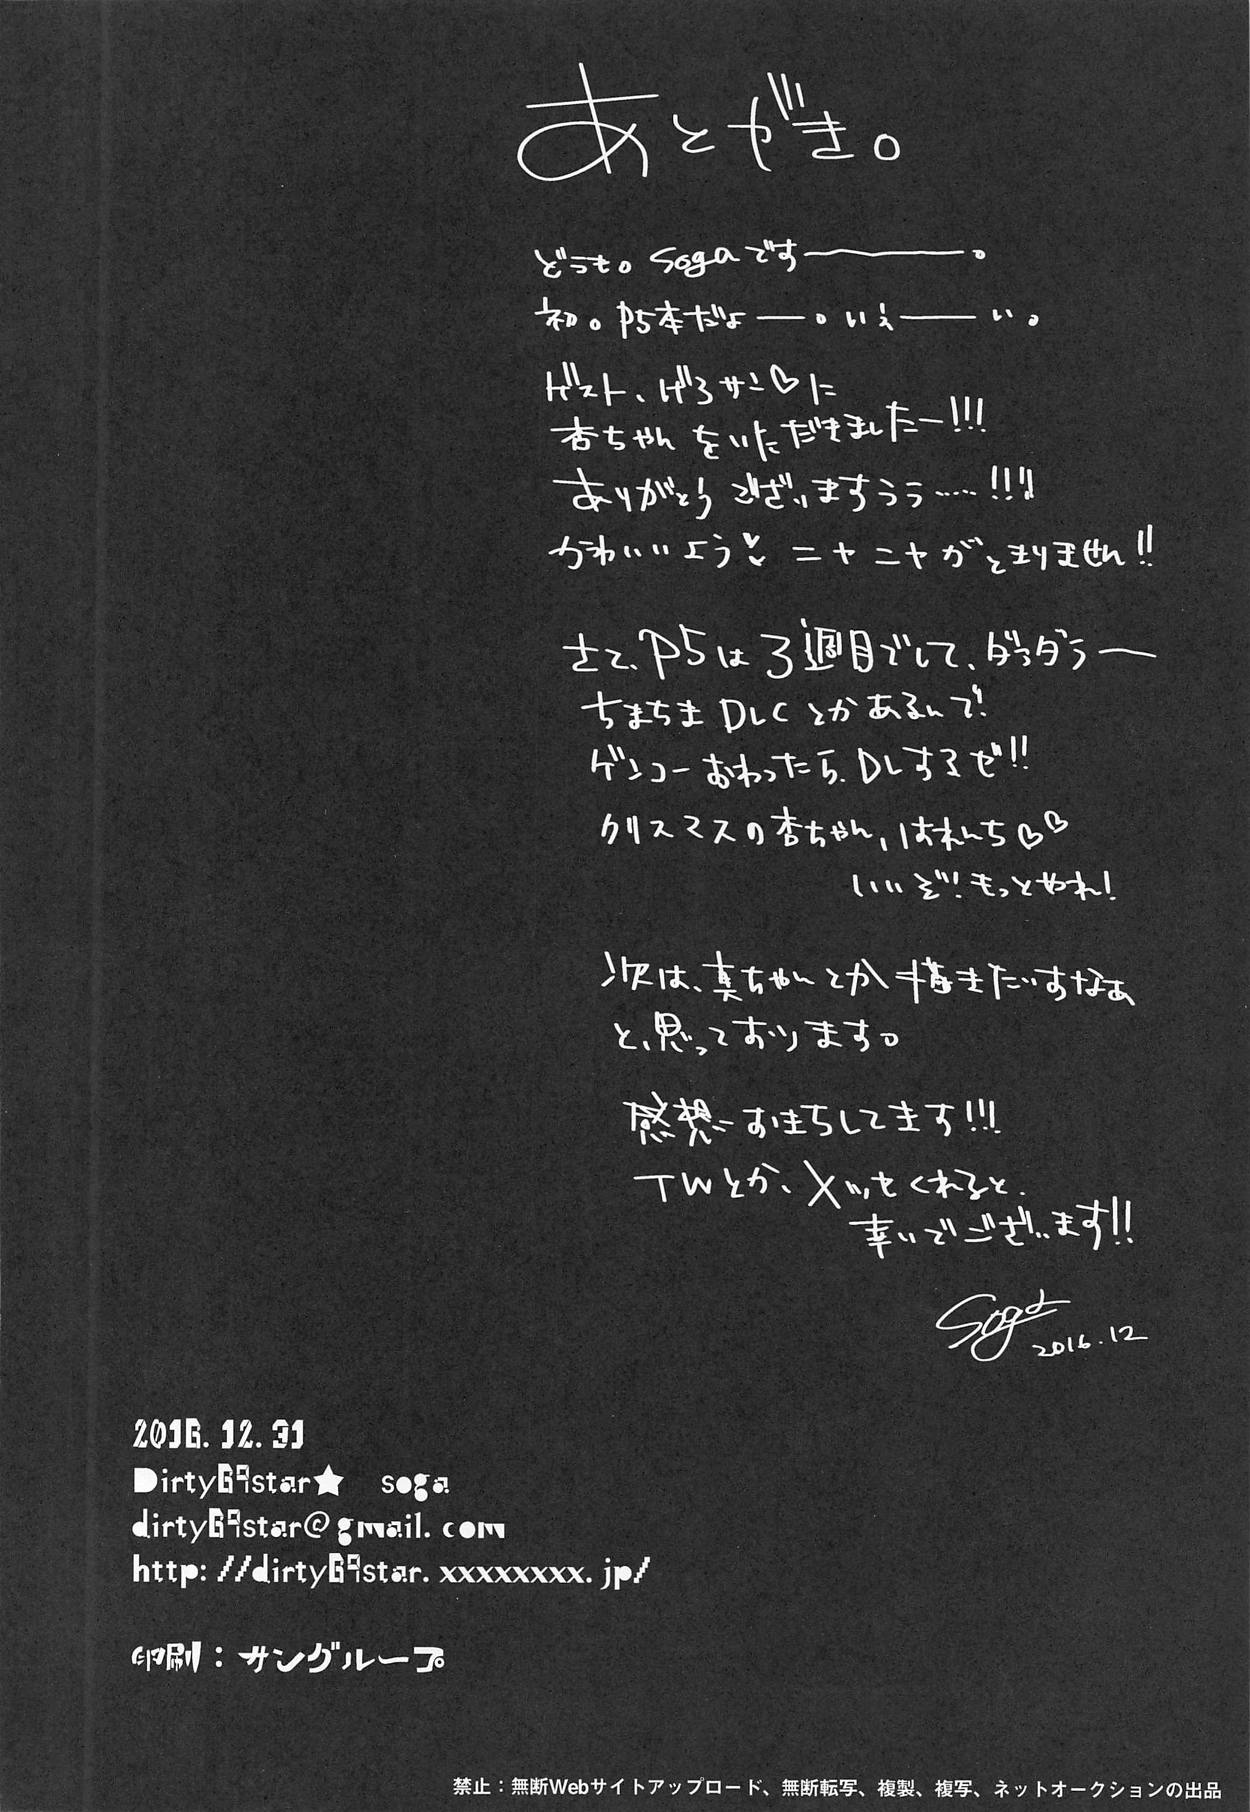 あとがき。
どうも。sogaです―――。
初。P5本だよ―。いえ――い。
ゲスト、げろサン♡に
杏ちゃんをいただきましたー!!!
ありがとうございますうぅ……!!!
かわいいよう♥ ニヤニヤがとまりません!!
さて、P5は3週目でして、ダラダラー
ちまちまDLCとかあるんで!
ゲンコーおわったら、DLするぜ!!
クリスマスの杏ちゃん、はれんち♡♡
いいぞ!もっとやれ!
次は、真ちゃんとか描きたいすなぁ
と、思っております。
感想おまちしてます!!!
TWとか、メッセくれると、
幸いでございます!!
Soga
2016.12
2016. 12. 31
Dirty69star★ soga
dirty69star@gmail.com
http://dirty69star.xxxxxxxx.jp/
印刷：サングループ
禁止：無断Webサイトアップロード、無断転写、複製、複写、ネットオークションの出品